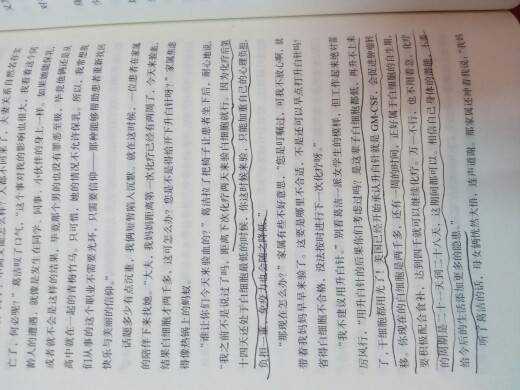 怎么样？人都不回来了，夫妻关系自然名存实
亡了，何必呢？”葛洁叹了口气，“这个事对我的影响也很大，我看着这个同
龄人的遭遇，就像是发生在同学、同事、小伙伴的身上一样。如果她能保乳，
或者就不会是这样的结果，毕竟那个男的也没有罪恶至极，毕竟他俩还是从
高中就在一起的青梅竹马，只可惜，她的情况不允许保乳。所以，我常想我
们从事的这个职业不需要光环，只需要信仰——那种能够帮助患者重新找回
快乐与美丽的信仰。”
话题多少有点沉重，我俩短暂陷入沉默，就在这时候，一位患者在家属
的陪伴下来找她。“大夫，我妈妈距离第一次化疗已经有两周了，今天来验血，
结果白细胞才两千多，这可怎么办？您是不是得给开下升白针呀？”家属焦虑
得像热锅上的蚂蚁。
“谁让你们今天来验血的？”葛洁拉了把椅子让患者坐下后，耐心地说，
“我之前不是说过了吗，距离下次化疗两天来验白细胞就行。因为化疗后第
十四天还处于白细胞最低的时候，你这时候来验，只能加重自己的心理负担，
负担一重，免疫力也会随之降低。”
“那现在怎么办？”家属有些不好意思，“您是叮嘱过，可我不放心啊，就
带着我妈妈早早来验了。这要是哪里不合适，不是还可以早点打升白针吗？
省得白细胞不合格，没法按时进行下一次化疗呀。”
“我不建议用升白针。”别看葛洁一派女学生的模样，但工作起来绝对雷
厉风行，“用升白针的后果你们考虑过吗？是这辈子白细胞都低，再升不上来
了，干细胞都用光了！美国已经开始承认升白针就是GM-CSF，会促进肿瘤转
移。你现在的白细胞是两千多，还有一周的时间，正好属于白细胞的自生期，
要积极配合食补，达到四千就可以继续化疗。万一不行，也不用着急，化疗
的周期是二十一天到二十八天，这期间都可以，相信自己身体的潜能，不要
给今后的生活添加更多的隐患。”
听了葛洁的话，母女俩恍然大悟，连声道谢，那家属还冲着我说，“我妈